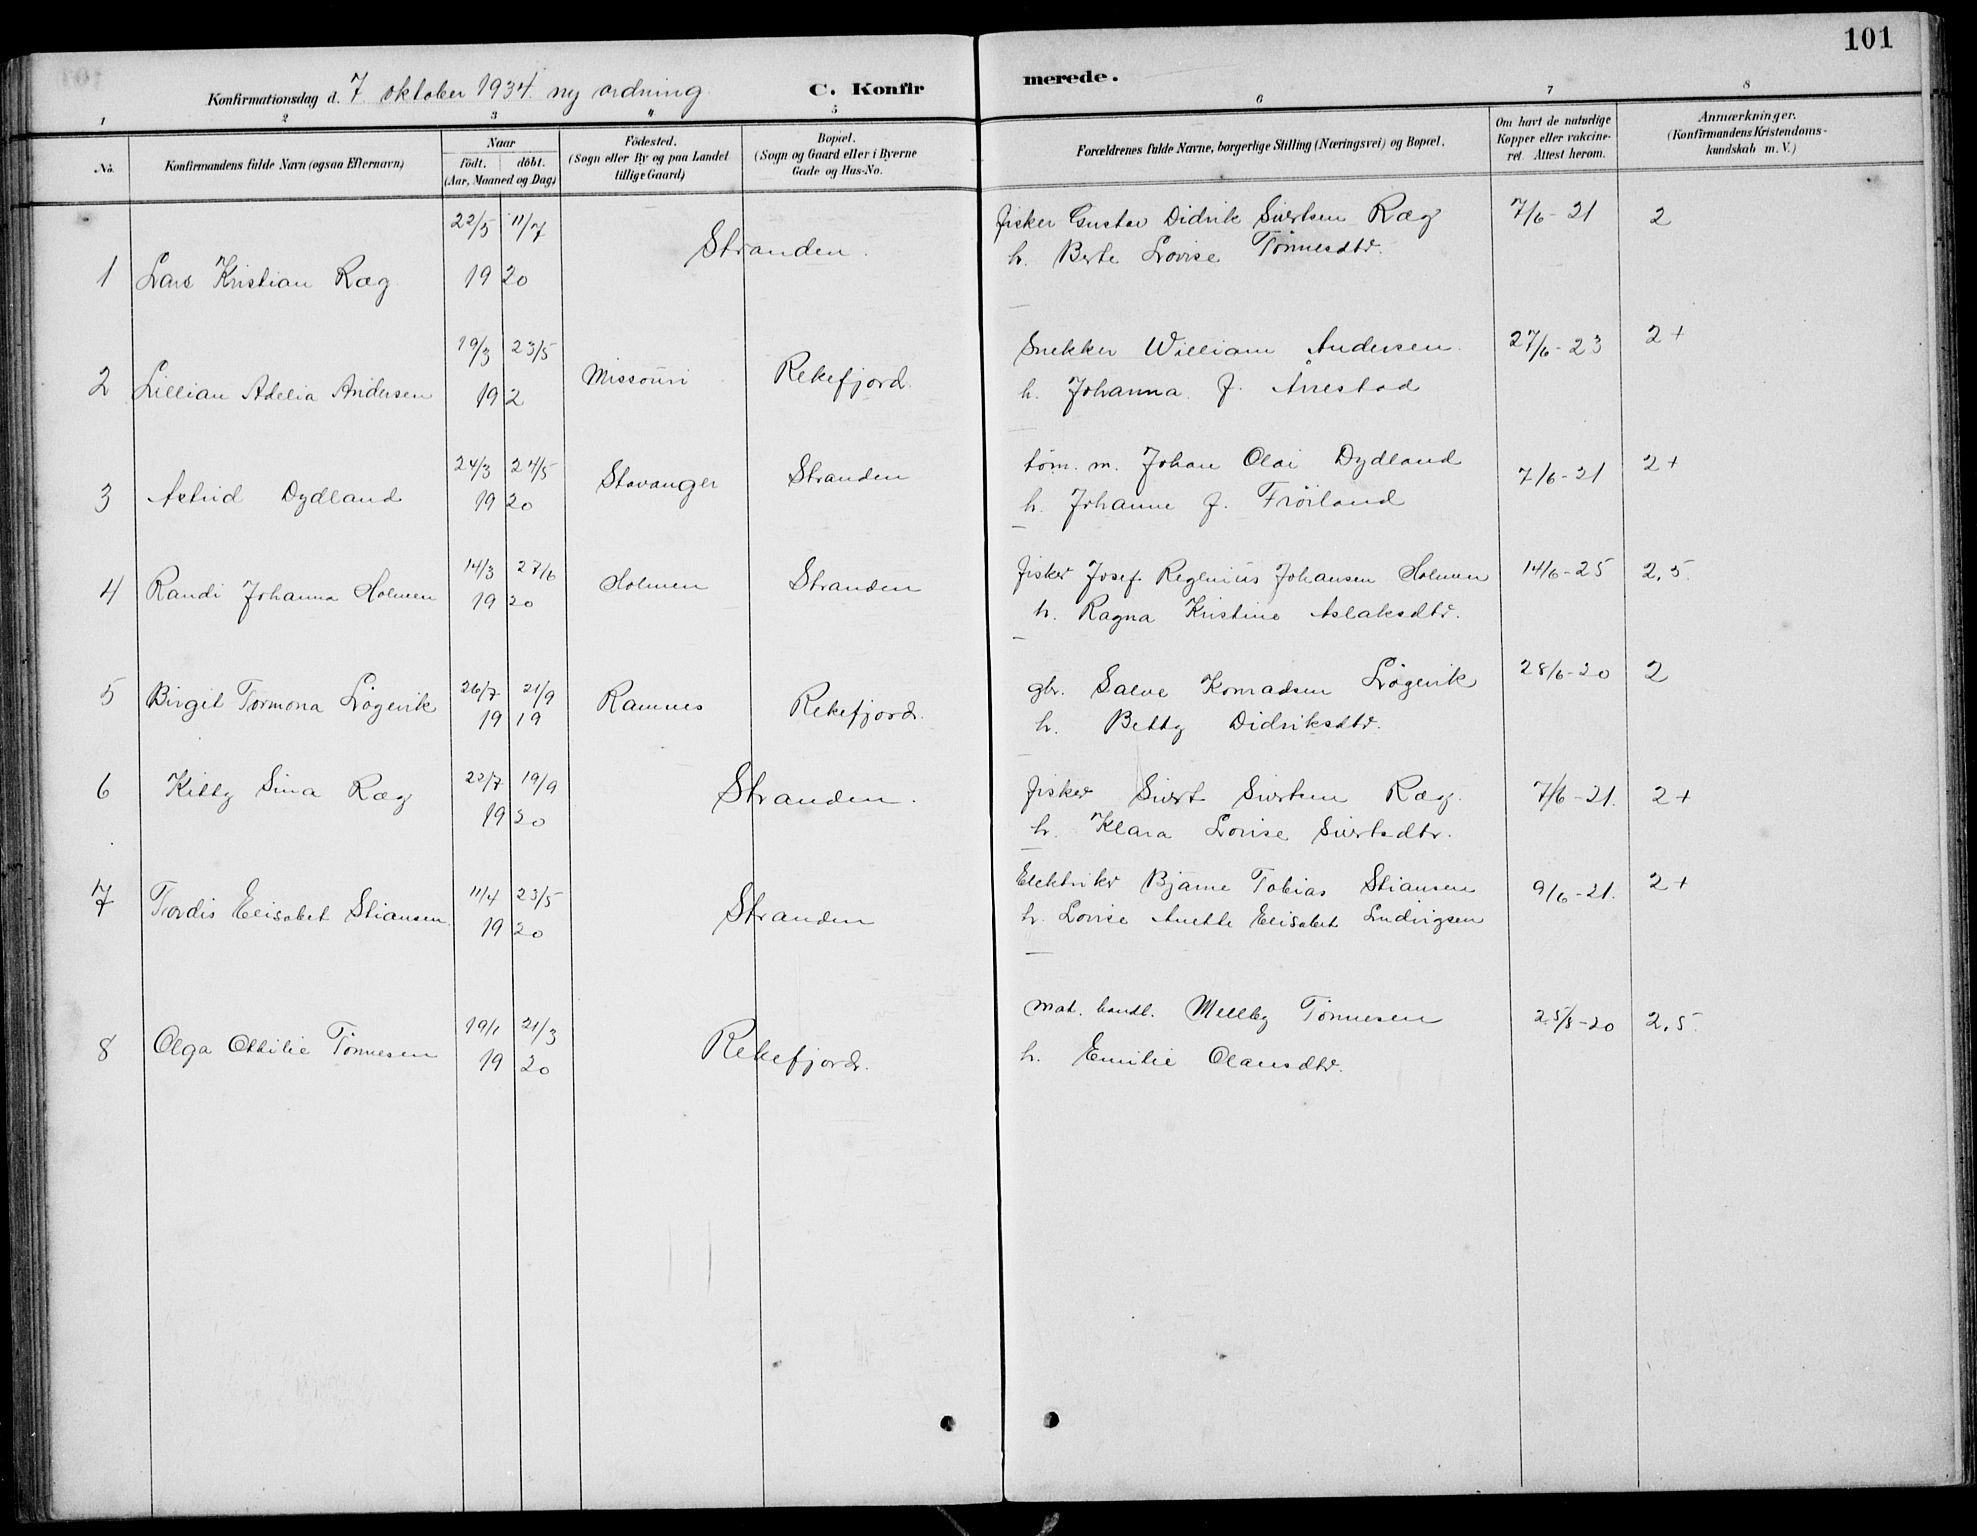 101
Konfirmationsdag d. 7 oktober 1934. ny ordning C. Konfirmerede.
1 2 3 4 5 6 7 8
No. Konfirmandens fulde Navn (ogsaa Efternavn) Naar födt. döbt. (Aar, Maaned og Dag) Födested. (Sogn eller By og paa Landet tillige Gaard) Bopæl. (Sogn og Gaard eller i Byerne Gade og Hus-No. Forældrenes fulde Navne, borgerlige Stilling (Næringsvei) og Bopæl. Om havt de naturlige Kopper eller vakcineret. Attest herom. Anmærkninger. (Konfirmandens Kristendomskundskab m. V.)
22/5 11/7 Stranden. fisker Gustav Didrik Sivertsen Ræg 7/6-21 2
1 Lars Kristian Ræg 19 20 h. Berte Lovise Tönnesdtr.
19/3 23/5 Snekker William Andersen 27/6-23 2+
2 Lillian Adelia Andersen 19 2 Missouri Rekefjord. h. Johanna f. Årrestad
24/3 24/5 Stavanger Stranden töm. m. Johan Olai Dydland 7/6-21 2+
3 Astrid Dydland 19 20 h. Johanne f. Fröiland
14/3 27/6 Holmen Stranden fisker Josef Reglnius Johansen Holmen 14/6-25 2,5.
4 Randi Johanna Holmen 19 20 h. Ragna Kristine Aslaksdtr.
5 Birgit Tormona Lögevik 26/7 21/9 Ramnes Rekefjord. gbr. Salve Konradsen Lögevik 28/6-20 2
19 19 h. Betty Didriksdtr.
6 Kitty Sina Ræg 22/7 19/9 Stranden. fisker Sivert Sivertsen Ræg. 7/6-21. 2+
19 20 h. Klara Lovise Sivertsdtr.
7 Tordis Elisabet Stiansen 11/4 23/5 Stranden Elektriker Bjarne Tobias Stiansen 9/6-21. 2+
19 20 h. Lovise Anette Elisabet Ludvigsen
19/1 21/3 mat. handl. Melleby Tönnesen 25/8-20 2,5.
8 Olga Ottilie Tönnesen 19 20 Rekefjord. h. Emilie Olausdtr.